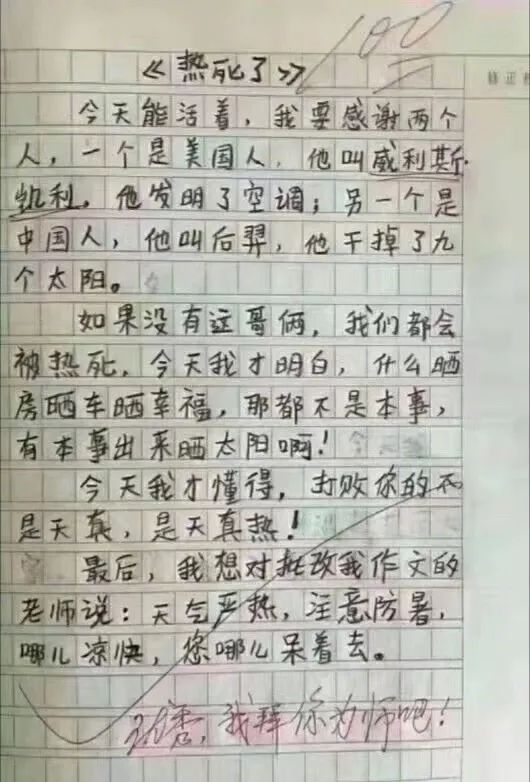 100
《热死了》
今天能活着，我要感谢两个
人，一个是美国人，他叫威利斯·
凯利，他发明了空调；另一个是
中国人，他叫后羿，他干掉了九
个太阳。
如果没有这哥俩，我们都会
被热死，今天我才明白，什么晒
房晒车晒幸福，那都不是本事，
有本事出来晒太阳啊！
今天我才懂得，打败你的不
是天真，是天真热！
最后，我想对批改我作文的
老师说：天气严热，注意防暑，
哪儿凉快，您哪儿呆着去。
我拜你为师吧！